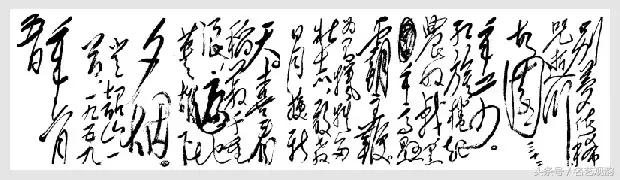 别梦依稀
咒逝川
故园三十二
年前。
红旗卷起
农奴戟黑
手高悬
霸主鞭
为有牺牲多
壮志敢教
日月换新
天喜看
稻菽千重
浪遍地
英雄下
夕烟。
登韶山一
首一九五九
年六月
头条号/名艺观韵